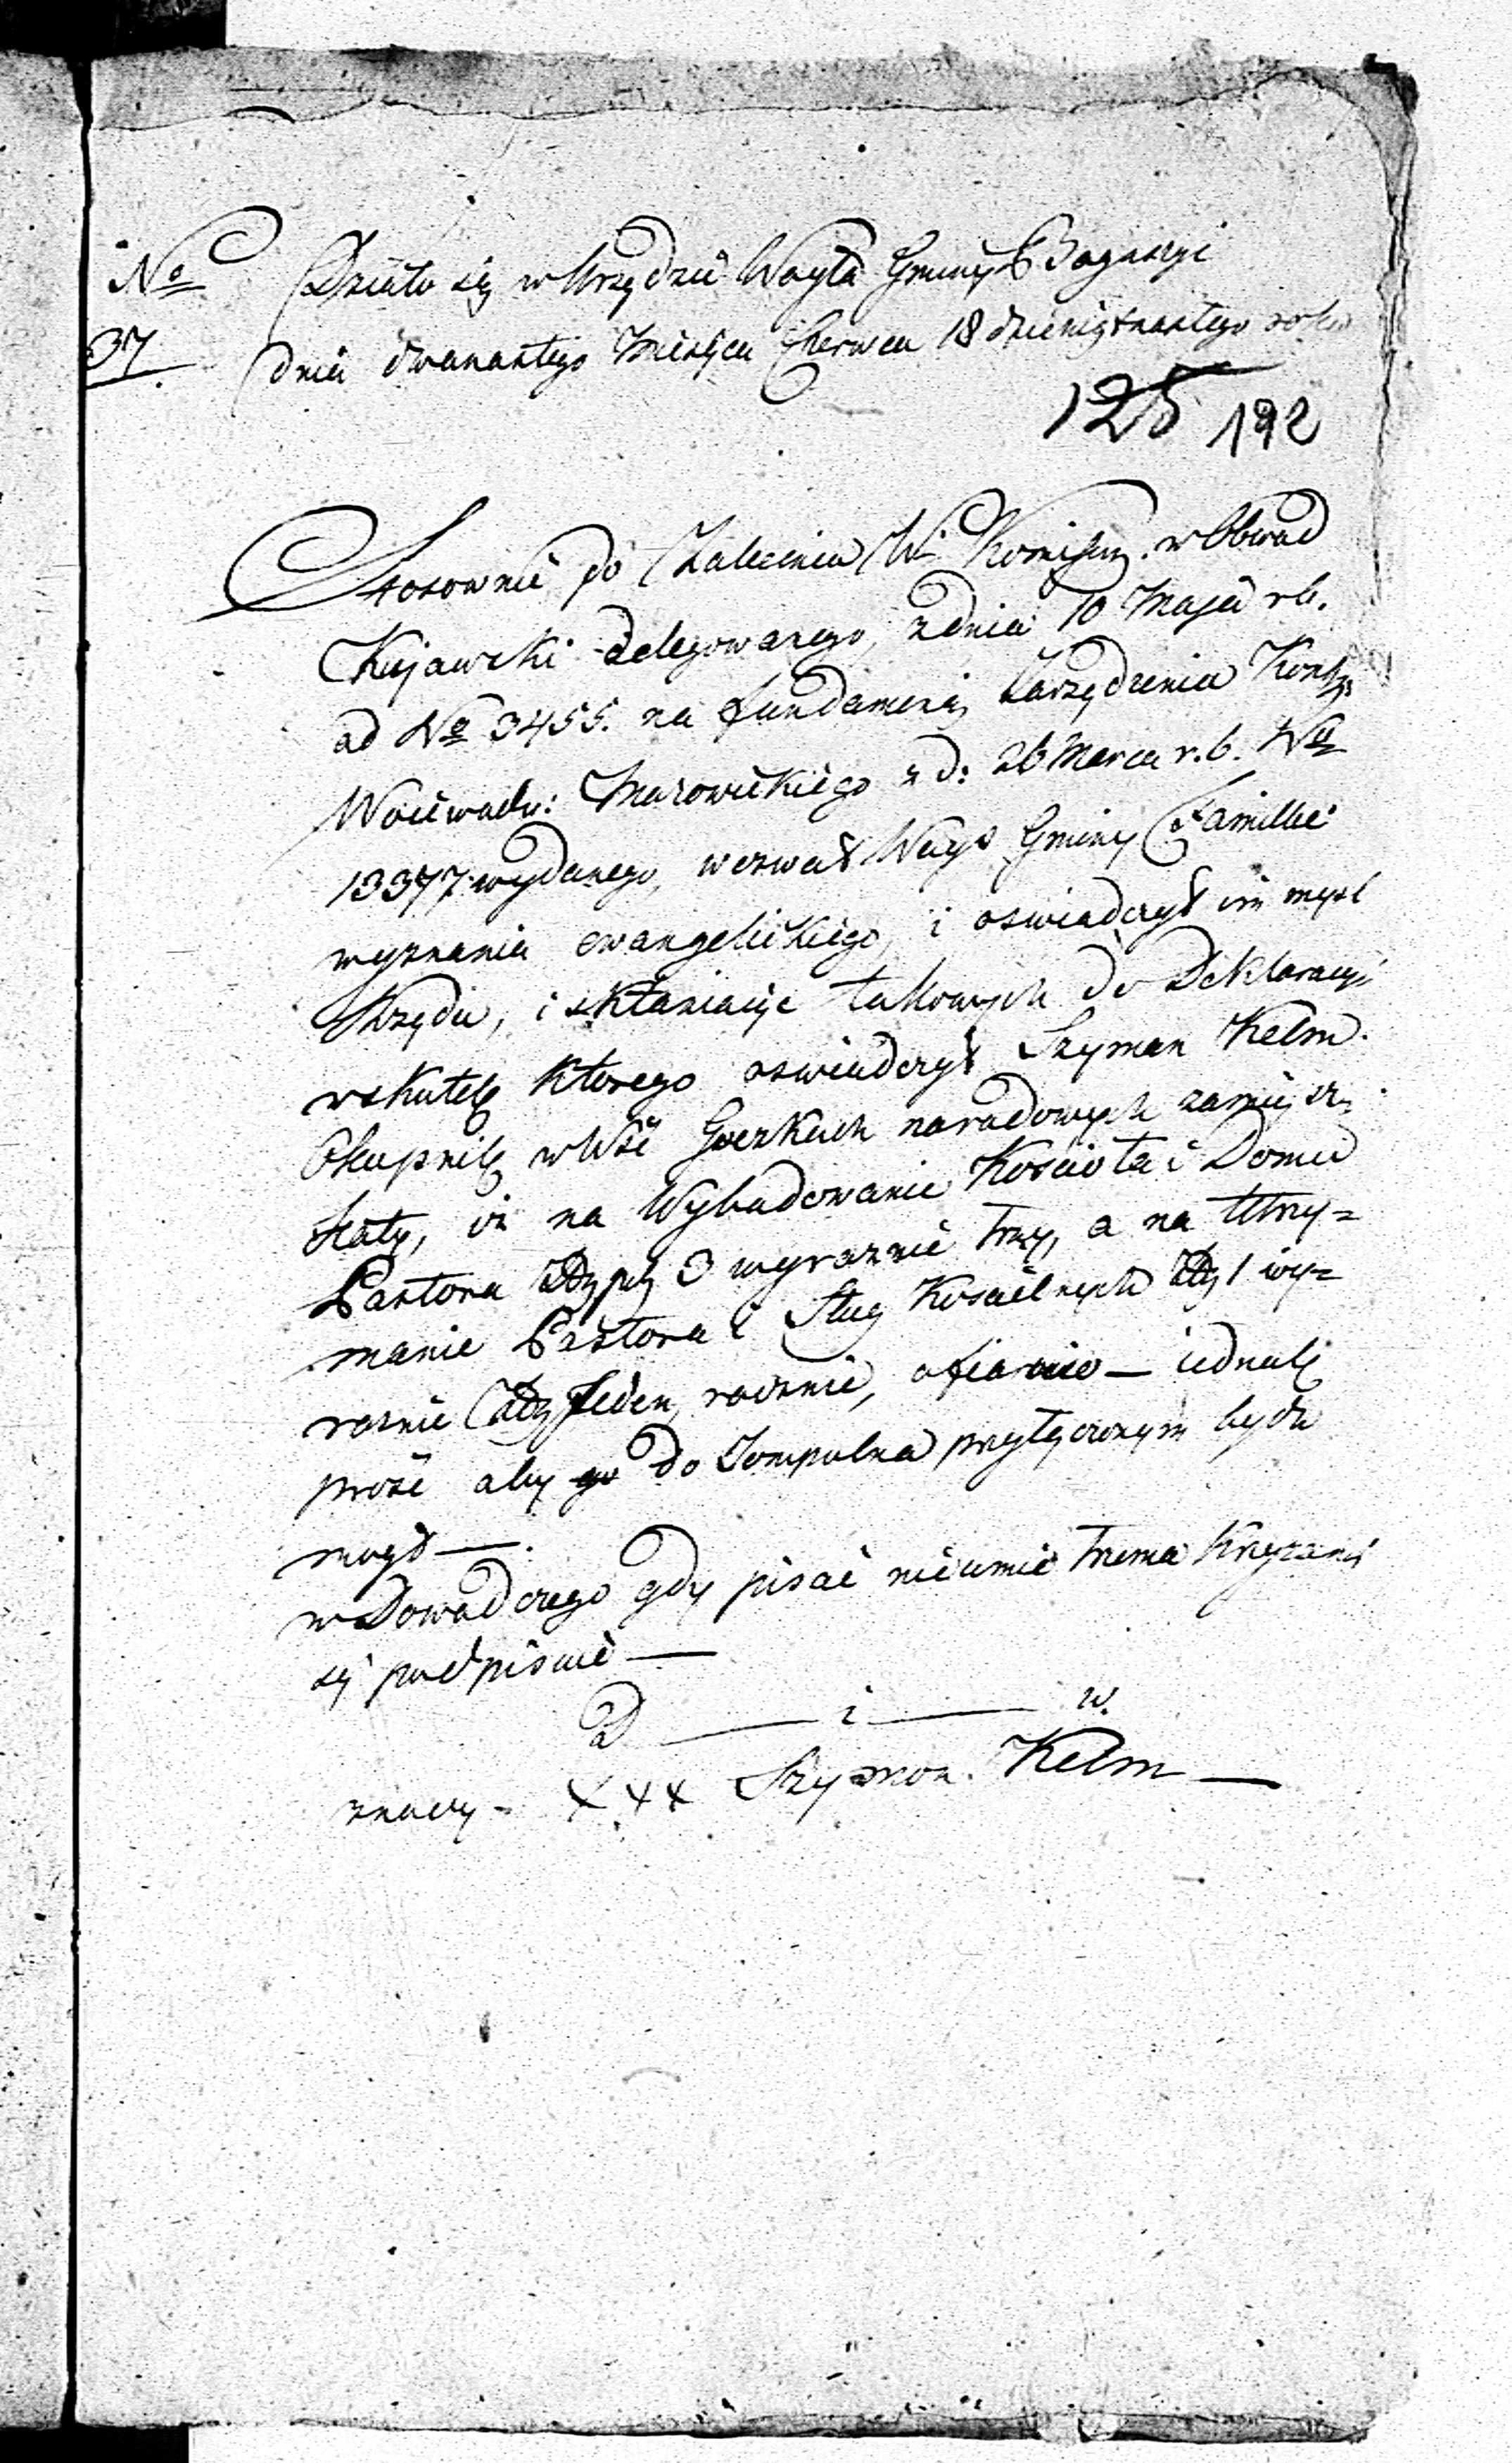 No Działo się w Urzędzie Woyta Gminy Bogaczyi
37. dnia dwunastego Miesięca Czerwca 18 dziewiętnastego roku
125 192
Stosownie do Zalecenia W. Komissarz. w Obwód
Kujawski delegowanego, z dnia 10 Maja r b.
ad No 3455. na fundamencie Zarządzenia
Woiewodz: Mazowieckiego z d: 26 Marca r. b. No
13377 wydanego, wezwał Woyt Gminy Famillie
wyznania ewangelickiego, i oswiadczył im mysl
Rządu, i skłaniaiąc takowych do Deklaracyi
w skutek ktorego oswiadczył Szymon Kelm.
Okupnik w Wsi Gorkach narodowych zamiesz
kały, iż na Wybudowanie Koscioła i Domu
Pastora Złł pol 3 wyraznie trzy, a na Utrzy=
manie Pastora i Sług Koscielnych Zł 1 wy=
raznie Zł Jeden, rocznie, ofiaruie — iednak
prosi aby go do Sompolna przyłączonym bydz
mogł —.
w Dowod czego gdy pisać nieumie trzema Krzyzami
się podpisuie —
D — i — w.
znaczy - XXX Szymon. Kelm —